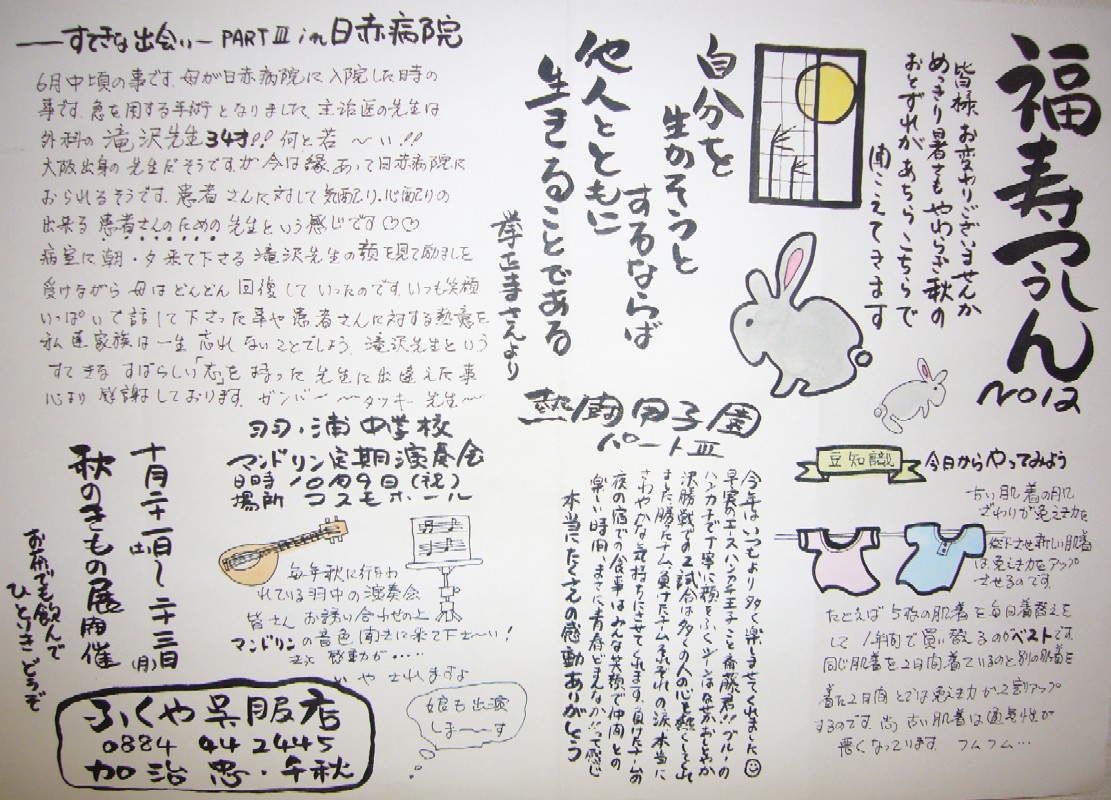 福寿つうしん
No12
皆様、お変わりございませんか
めっきり暑さもやわらぎ秋の
おとずれがあちらこちらで
聞こえてきます
自分を
生かそうと
するならば
他人とともに
生きることである
拳正寺さんより
すてきな出会い PART Ⅲ in 日赤病院
6月中頃の事です。母が日赤病院に入院した時の
事です。急を用する手術となりまして、主治医の先生は
外科の滝沢先生34才!!何と若〜い!!
大阪出身の先生だそうですが今は縁あって日赤病院に
おられるそうです。患者さんに対して気配り、心配りの
出来る患者さんのための先生という感じです♡♡
病室に朝・夕来て下さる滝沢先生の顔を見て励ましを
受けながら母はどんどん回復していったのです。いつも笑顔
いっぱいで話して下さった事や患者さんに対する熱意を
私達家族は一生忘れないことでしょう。滝沢先生という
すてきなすばらしい「志」を持った先生に出逢えた事
心より感謝しております。ガンバ〜〜タッキー先生〜
熱闘甲子園
パートⅢ
今年はいつもより多く楽しませてくれました☺
早実のエースハンカチ王子こと斎藤君!!ブルーの
ハンカチで丁寧に顔をふくシーンはなぜかおだやか
決勝戦での2試合は多くの人の心を熱くしてくれ
ました。勝ったチーム、負けたチームそれぞれの涙、本当に
さわやかな気持ちにさせてくれます。負けたチームの
夜の宿での食事はみんな笑顔で仲間との
楽しい時間。まさに青春どまんなか!!って感じ
本当にたくさんの感動ありがとう
豆知識
今日からやってみよう
古い肌着の肌
ざわりが免えき力を
低下させ新しい肌着
は免えき力をアップ
させるのです。
たとえば5枚の肌着を毎日着替えを
して1年間で買い替えるのがベストです。
同じ肌着を2日間着ているのと別の肌着を
着た2日間とでは免えき力が2割アップ
するのです。尚、古い肌着は通気性が
悪くなっています。フムフム…
羽ノ浦中学校
マンドリン定期演奏会
日時 10月9日(祝)
場所 コスモホール
毎年秋に行なわ
れている羽中の演奏会
皆さんお誘い合わせの上
マンドリンの音色聞きに来て下さ〜い!
感動が……
いやされますよ
娘も出演
しま〜〜す
十月二十一日(土)〜二十三日(月)
秋のきもの展開催
お茶でも飲んで
ひといきどうぞ
ふくや呉服店
0884 42 2445
加治 忠・千秋